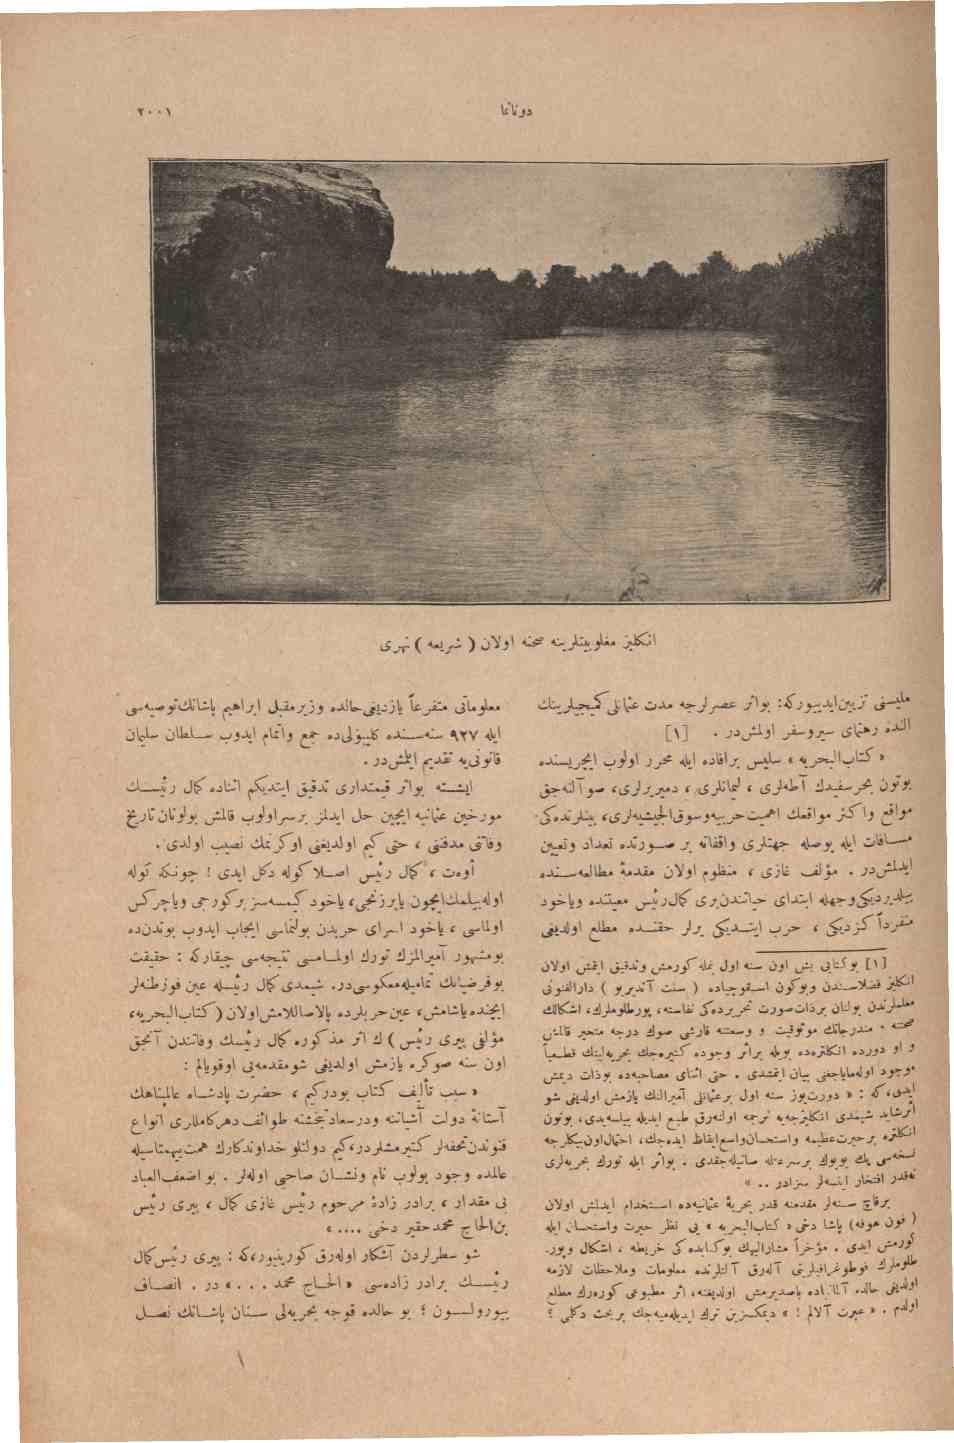 دوناﻧﻤﺎ
٢٠٠١
انكليز مغلوبيتلرينه صحنه اولان ( شريعه ) نهرى
مليسنى تزيين ايدييوركه: بواثر عصرلرجه مدت عثمانلى كميجيلرينك
النده رهنماى سيروسفر اولمش‌در . [١]
« كتاب‌البحريه » سليس برافاده ايله محرر اولوب ايچريسنده
بوتون بحرسفيدك آطه‌لرى ، ليمانلرى ، دميريرلرى، صو آلنه‌جق
مواقع واكثر مواقعك اهميت حربيه‌وسوق‌الجيشيه‌لرى، بينلرنده‌كى
مسافات ايله پوصله جهتلرى واقفانه بر صورتده تعداد وتعيين
ايدلمش‌در . مؤلف غازى ، منظوم اولان مقدمهٔ مطالعه‌سنده
بيلديرديكى‌وجهله ابتداى حياتندن‌برى كمال‌رئيس معيتنده وياخود
منفرداً كزديكى ، حرب ايتديكى يرلر حقنده مطلع اولديغى
[١] بوكتابى بش اون سنه اول بمله كورمش وتدقيق ايتمش اولان
انكليز فضلاسندن وبوكون اسقوچياده ( سنت آندريو ) دارالفنونى
معلملرندن بولنان برذات‌صورت تحريرده‌كى نفاسته، پورطلوملرك، اشكالك
صحتنه ، مندرجاتك موثوقيت و وسعتنه قارشى صوك درجه متحير قالمش
و او دورده انكلتره‌ده بويله براثر وجوده كتيره‌جك بحريه‌لينك قطعياً
موجود اوله‌ماياجغنى بيان ايتمشدى . حتى اثناى مصاحبه‌ده بوذات ديمش
ايدى، كه : « دورت‌يوز سنه اول برعثمانلى آميرالنك يازمش اولديغى شو
اثرشايد شيمدى انكليزجه‌يه ترجمه اولنه‌رق طبع ايديله بيلسه‌يدى، بوتون
انكلتره برحيرت‌عظيمه واستحسان‌واسع‌ايقاظ ايده‌جك، احتمال‌اون‌بيكلرجه
نسخه‌سى پك بويوك برسرعتله صاتيله‌جقدى . بواثر ايله تورك بحريه‌لرى
نه‌قدر افتخار ايتسه‌لر سزادر .. »
برقاچ سنه‌لر مقدمنه قدر بحريهٔ عثمانيه‌ده استخدام ايدلمش اولان
( فون هوفه) پاشا دخى « كتاب‌البحريه » يى نظر حيرت واستحسان ايله
كورمش ايدى . مؤخراً مشاراليهك بوكتابده كى خريطه ، اشكال وپور-
طلوملرك فوطوغرافيلرينى آله‌رق آلتلرنده معلومات وملاحظات لازمه
اولديغى حالده آلمانياده باصديرمش اولديغنه، اثر مطبوعى كوره‌رك مطلع
اولدم . « عبرت آلالم ! » ديمكسزين ترك ايديله‌ميه‌جك بربحث دكلمى ؟
معلوماتى متفرعاً يازديغى‌حالده وزيرمقبل ابراهيم پاشانك‌توصيه‌سى
ايله ٩٢٧ سنه‌سنده كليبولى‌ده جمع واتمام ايدوب سلطان سليمان
قانونى‌يه تقديم ايتمش‌در .
ايشته بواثر قيمتدارى تدقيق ايتديكم اثناده كمال رئيسك
مورخين عثمانيه ايچين حل ايدلمز برسراولوب قالمش بولونان‌تاريخ
وفاتنى مدفننى ، حتى كيم اولديغنى اوكرنمك نصيب اولدى .
أوه‌ت ، كمال رئيس اصلا كوله دكل ايدى ! چونكه كوله
اوله‌بيلمك‌ايچون يابرزنجى، ياخود كيمسه‌سز بركورجى وياچركس
اولماسى ، ياخود اسراى حربدن بولنماسى ايجاب ايدوب بوندن‌ده
بومشهور آميرالمزك تورك اولمامسى نتيجه‌سى چيقاركه : حقيقت
بوفرضيه‌نك تماميله‌معكوسى‌در. شيمدى كمال رئيسله عين فورطنه‌لر
ايچنده‌ياشامش، عين‌حربلرده پالاصاللامش‌اولان ( كتاب‌البحريه،
مؤلفى پيرى رئيس ) ك اثر مذكوره كمال رئيسك وفاتندن آنجق
اون سنه صوكره يازمش اولديغى شومقدمه‌يى اوقويالم :
« سبب تأليف كتاب بودركيم ، حضرت پادشاه عالمپناهك
آستانهٔ دولت آشيانه ودرسعادتبخشنه طوائف‌دهركاملارى انواع
فنوندن‌تحفه‌لر كتيرمشلردر،كيم دولتلو خداوندكارك همت‌بيهمتاسيله
عالمده وجود بولوب نام ونشان صاحبى اوله‌لر . بو اضعف‌العباد
بى مقدار ، برادر زادهٔ مرحوم رئيس غازى كمال ، پيرى رئيس
بن‌الحاج محمدحقير دخى .... »
شو سطرلردن آشكار اوله‌رق كورينيور،كه : پيرى رئيس‌كمال
رئيسك برادر زاده‌سى « الحاج محمد . . . » در . انصاف
بيورولسون ؛ بو حالده قوجه بحريه‌لى سنان پاشانك نصل